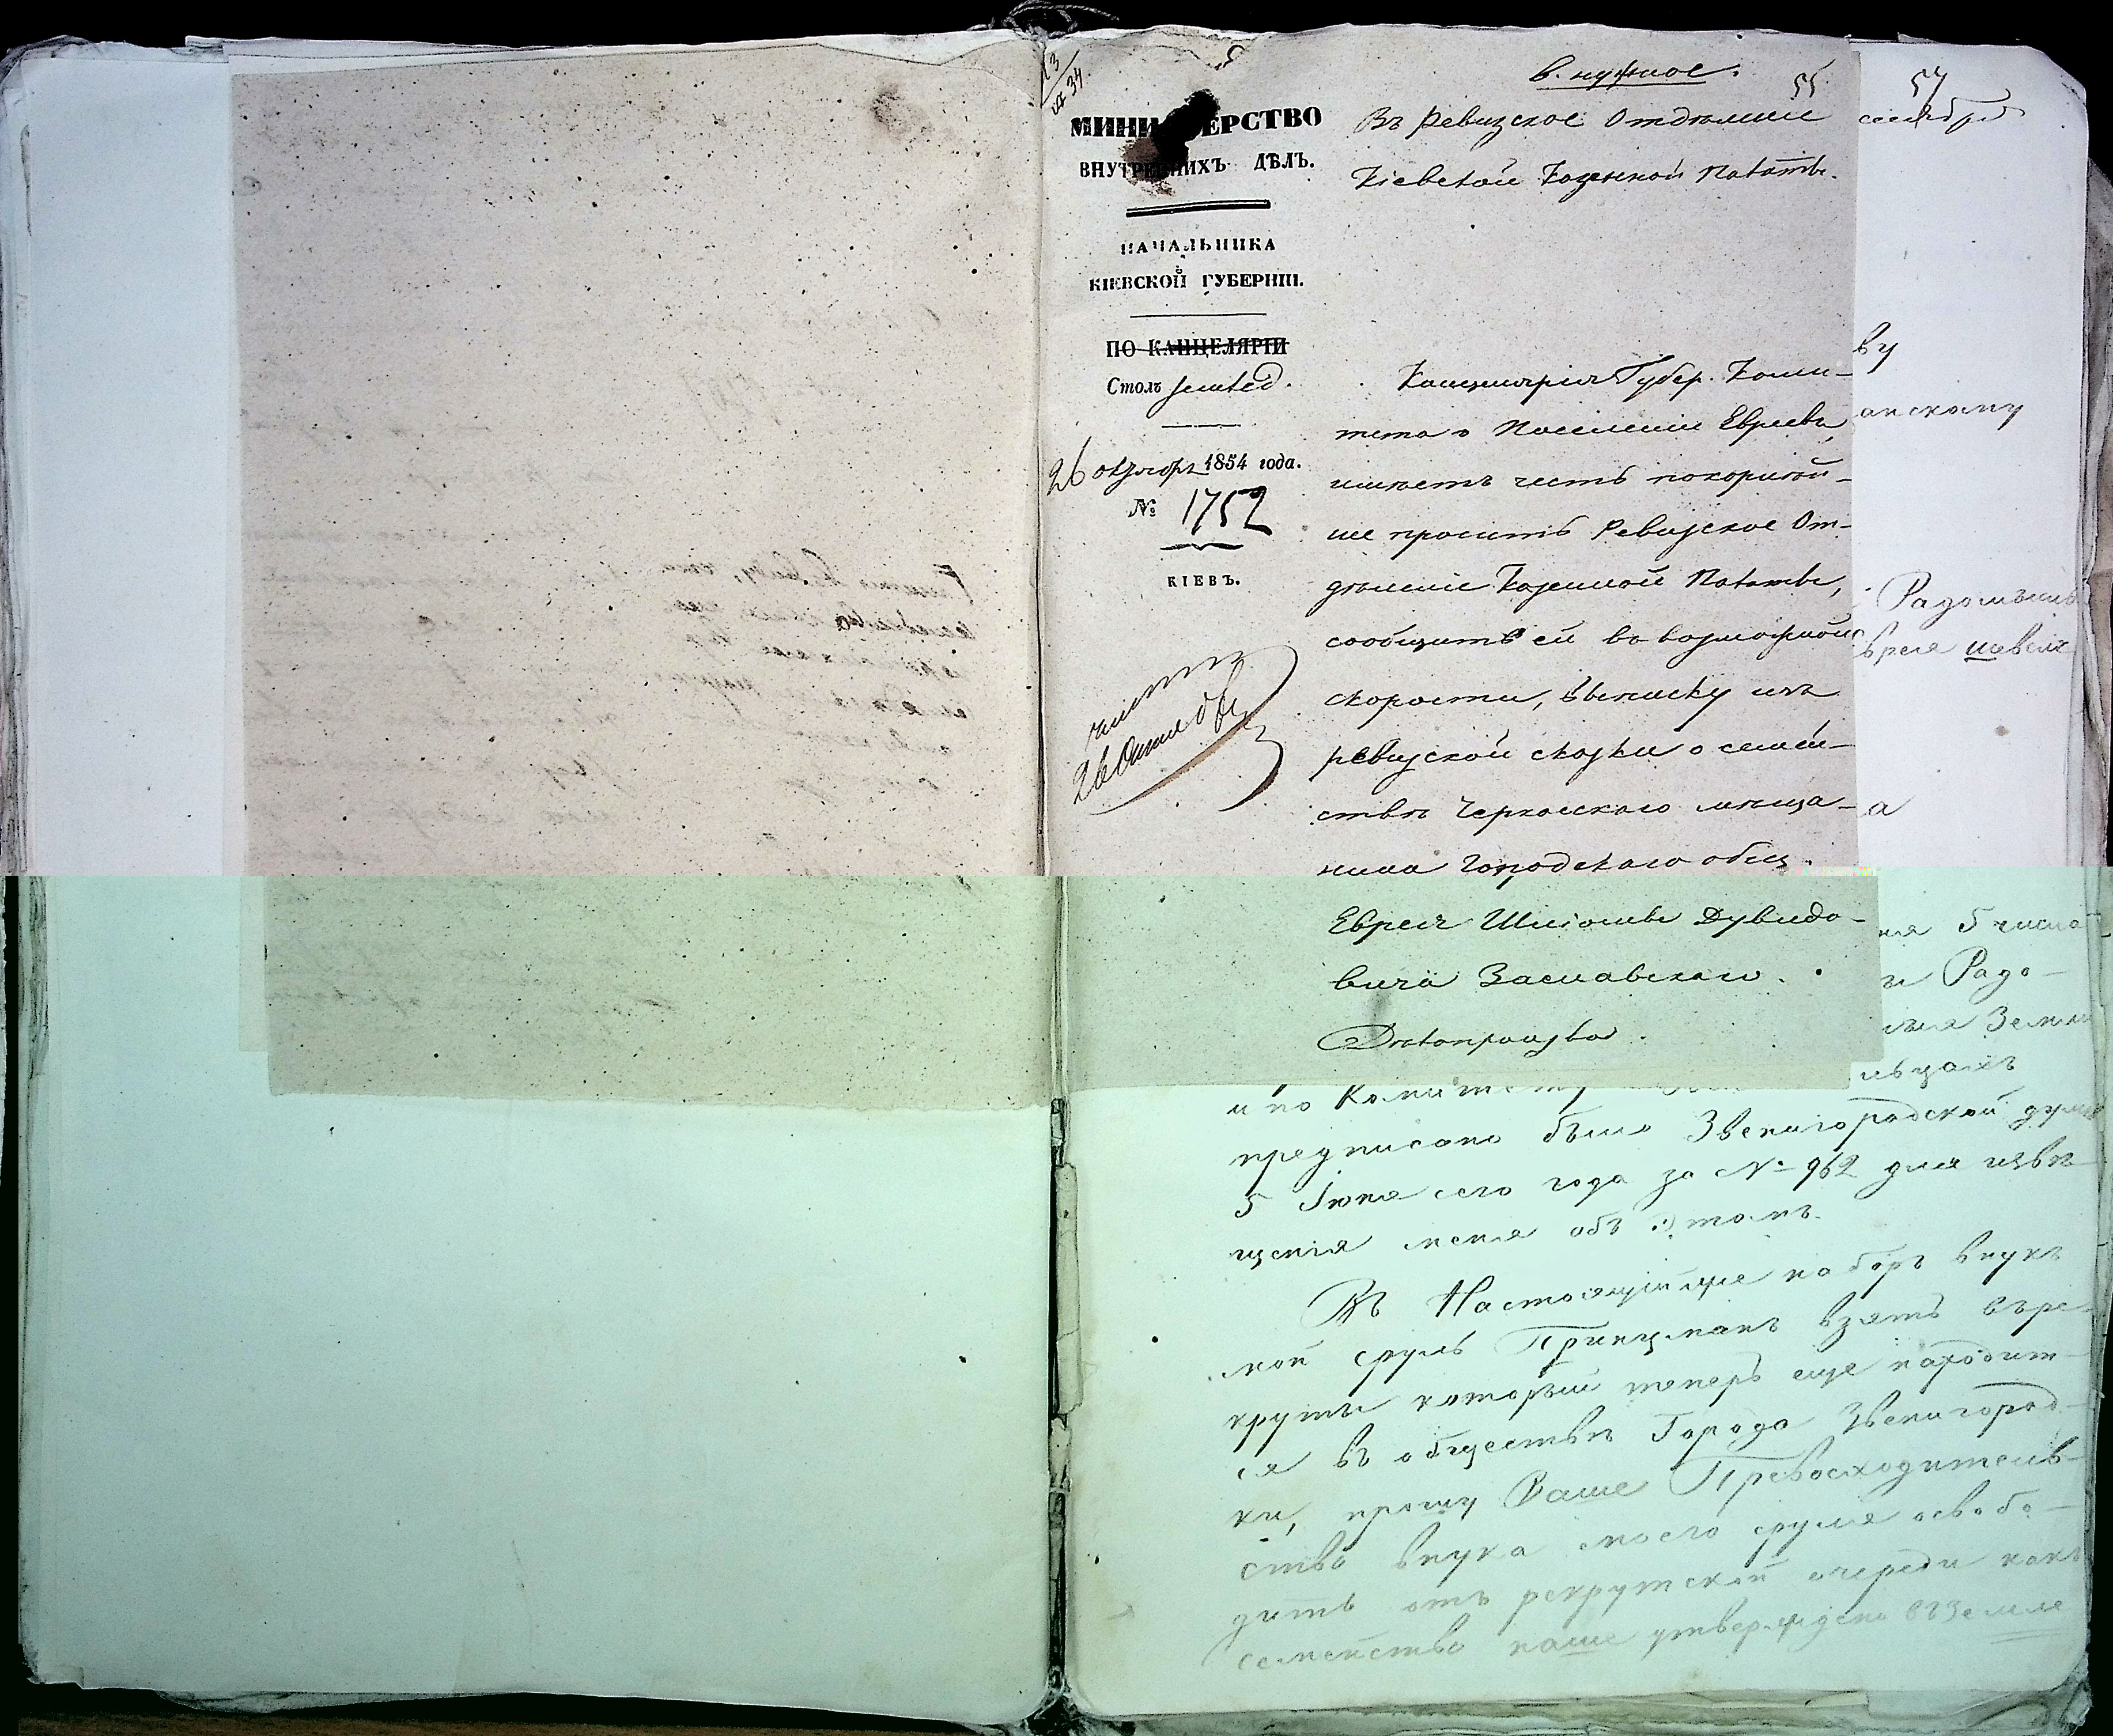 в. нужное.
55
57
МИНИСТЕРСТВО
ВНУТРЕННИХЪ ДѢЛЪ.
НАЧАЛЬНИКА
КІЕВСКОЙ ГУБЕРНІИ.
ПО КАНЦЕЛЯРІИ
Столъ
26 октября 1854 года.
№ 1752
КІЕВЪ.
Въ Ревизское Отдѣленіе
Кіевской Казенной Палаты.
Канцелярія Губер. Коми-
тета о Поселеніи Евреевъ,
имѣетъ честь покорнѣй-
ше просить Ревизское От-
дѣленіе Казенной Палаты,
сообщить ей въ возможной
скорости, выписку изъ
ревизской сказки о семей-
ствѣ Черкасскаго мѣща-
нина городскаго общ.
Еврея Шліомы Дувидо-
вича Заславскаго.
сентября
ву
анскому
Радомысль
врея шевелъ
а
ня 5 числа
Радо-
Земли
и по Комитету
предписано было Звенигородской думѣ
5 Іюня сего года за № 962 для извѣ-
щенія меня объ этомъ.
Въ Настоящій же наборъ внукъ
мой сруль Принцманъ взятъ въ ре-
круты который теперь еще находит-
ся въ обществѣ Города Звенигород-
ки, прошу Ваше Превосходитель-
ство внука моего сруля освобо-
дить отъ рекрутской очереди какъ
семейство наше утверждено въ Земле